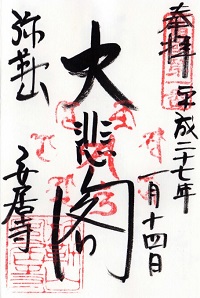 奉拝
平成二十七年
一月十四日
大悲閣
弥勒山
安居寺